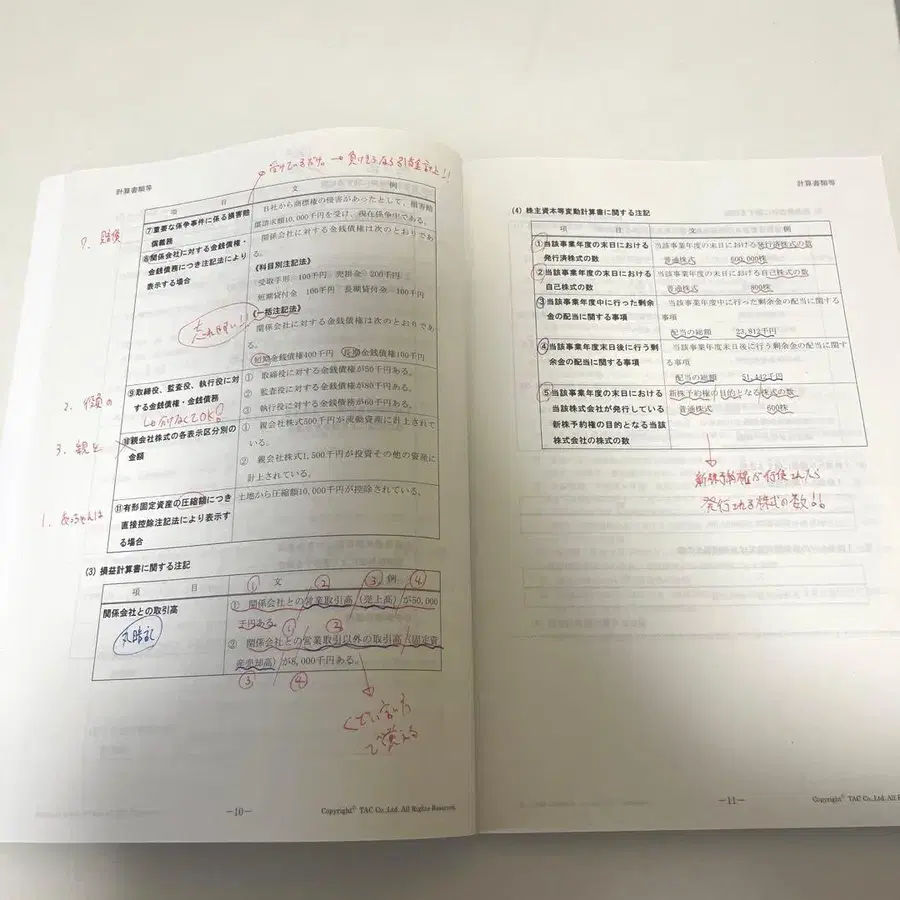 計算書類等
受けているだけ。→負けそうなら引当金計上!!
項 目 文 例
⑦重要な係争事件に係る損害賠償義務
B社から商標権の侵害があったとして、損害賠
償請求額10,000千円を受け、現在係争中である。
⑧関係会社に対する金銭債権・
金銭債務につき注記法により
表示する場合
関係会社に対する金銭債権は次のとおりであ
る。
《科目別注記法》
受取手形 100千円 売掛金 200千円
短期貸付金 100千円 長期貸付金 100千円
《一括注記法》
関係会社に対する金銭債権は次のとおりであ
る。
短期金銭債権400千円 長期金銭債権100千円
⑨取締役、監査役、執行役に対
する金銭債権・金銭債務
① 取締役に対する金銭債権が50千円ある。
② 監査役に対する金銭債権が80千円ある。
③ 執行役に対する金銭債務が60千円ある。
⑩親会社株式の各表示区分別の
金額
① 親会社株式500千円が流動資産に計上されて
いる。
② 親会社株式1,500千円が投資その他の資産に
計上されている。
⑪有形固定資産の圧縮額につき
直接控除注記法により表示す
る場合
土地から圧縮額10,000千円が控除されている。
2. 役員の
3. 親と
(3) 損益計算書に関する注記
項 目 文 例
① ② ③ ④
関係会社との取引高
丸暗記
① 関係会社との営業取引高(売上高)が50,000
千円ある。
① ②
② 関係会社との営業取引以外の取引高(固定資
産売却高)が8,000千円ある。
③ ④
で覚える
－10－
Copyright© TAC Co.,Ltd. All Rights Reserved.
計算書類等
(4) 株主資本等変動計算書に関する注記
項 目 文 例
①当該事業年度の末日における
発行済株式の数
当該事業年度の末日における発行済株式の数
普通株式 600,000株
②当該事業年度の末日における
自己株式の数
当該事業年度の末日における自己株式の数
普通株式 800株
③当該事業年度中に行った剰余
金の配当に関する事項
当該事業年度中に行った剰余金の配当に関する
事項
配当の総額 23,812千円
④当該事業年度末日後に行う剰
余金の配当に関する事項
当該事業年度末日後に行う剰余金の配当に関す
る事項
配当の総額 51,442千円
⑤当該事業年度の末日における
当該株式会社が発行している
新株予約権の目的となる当該
株式会社の株式の数
新株予約権の目的となる株式の数
普通株式 600株
新株予約権が行使されたら
発行される株式の数
－11－
Copyright© TAC Co.,Ltd. All Rights Reserved.